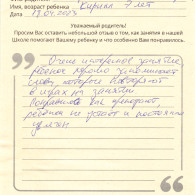 Имя, возраст ребенка Кирилл 7 лет
Дата 19.04.2023
Уважаемый родитель!
Просим Вас оставить небольшой отзыв о том, как занятия в нашей
Школе помогают Вашему ребенку и что особенно Вам понравилось.
Очень интересное занятие
ребенок хорошо запоминает
слова, которые повторяют
в играх на занятии
Понравилось как проводят,
ребенок не устает и постоянно
увлечен